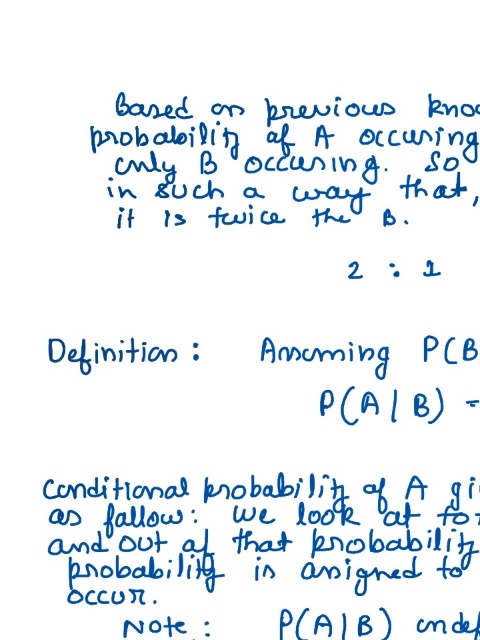 Based on previous kno
probability of A occuring
only B occuring. So
in such a way that,
it is twice the B.
2 : 1
Definition: Assuming P(B
P(A|B) =
Conditional probability of A gi
as follow: We look at to
and out of that probability
probability is assigned to
occur.
Note: P(A|B) undef